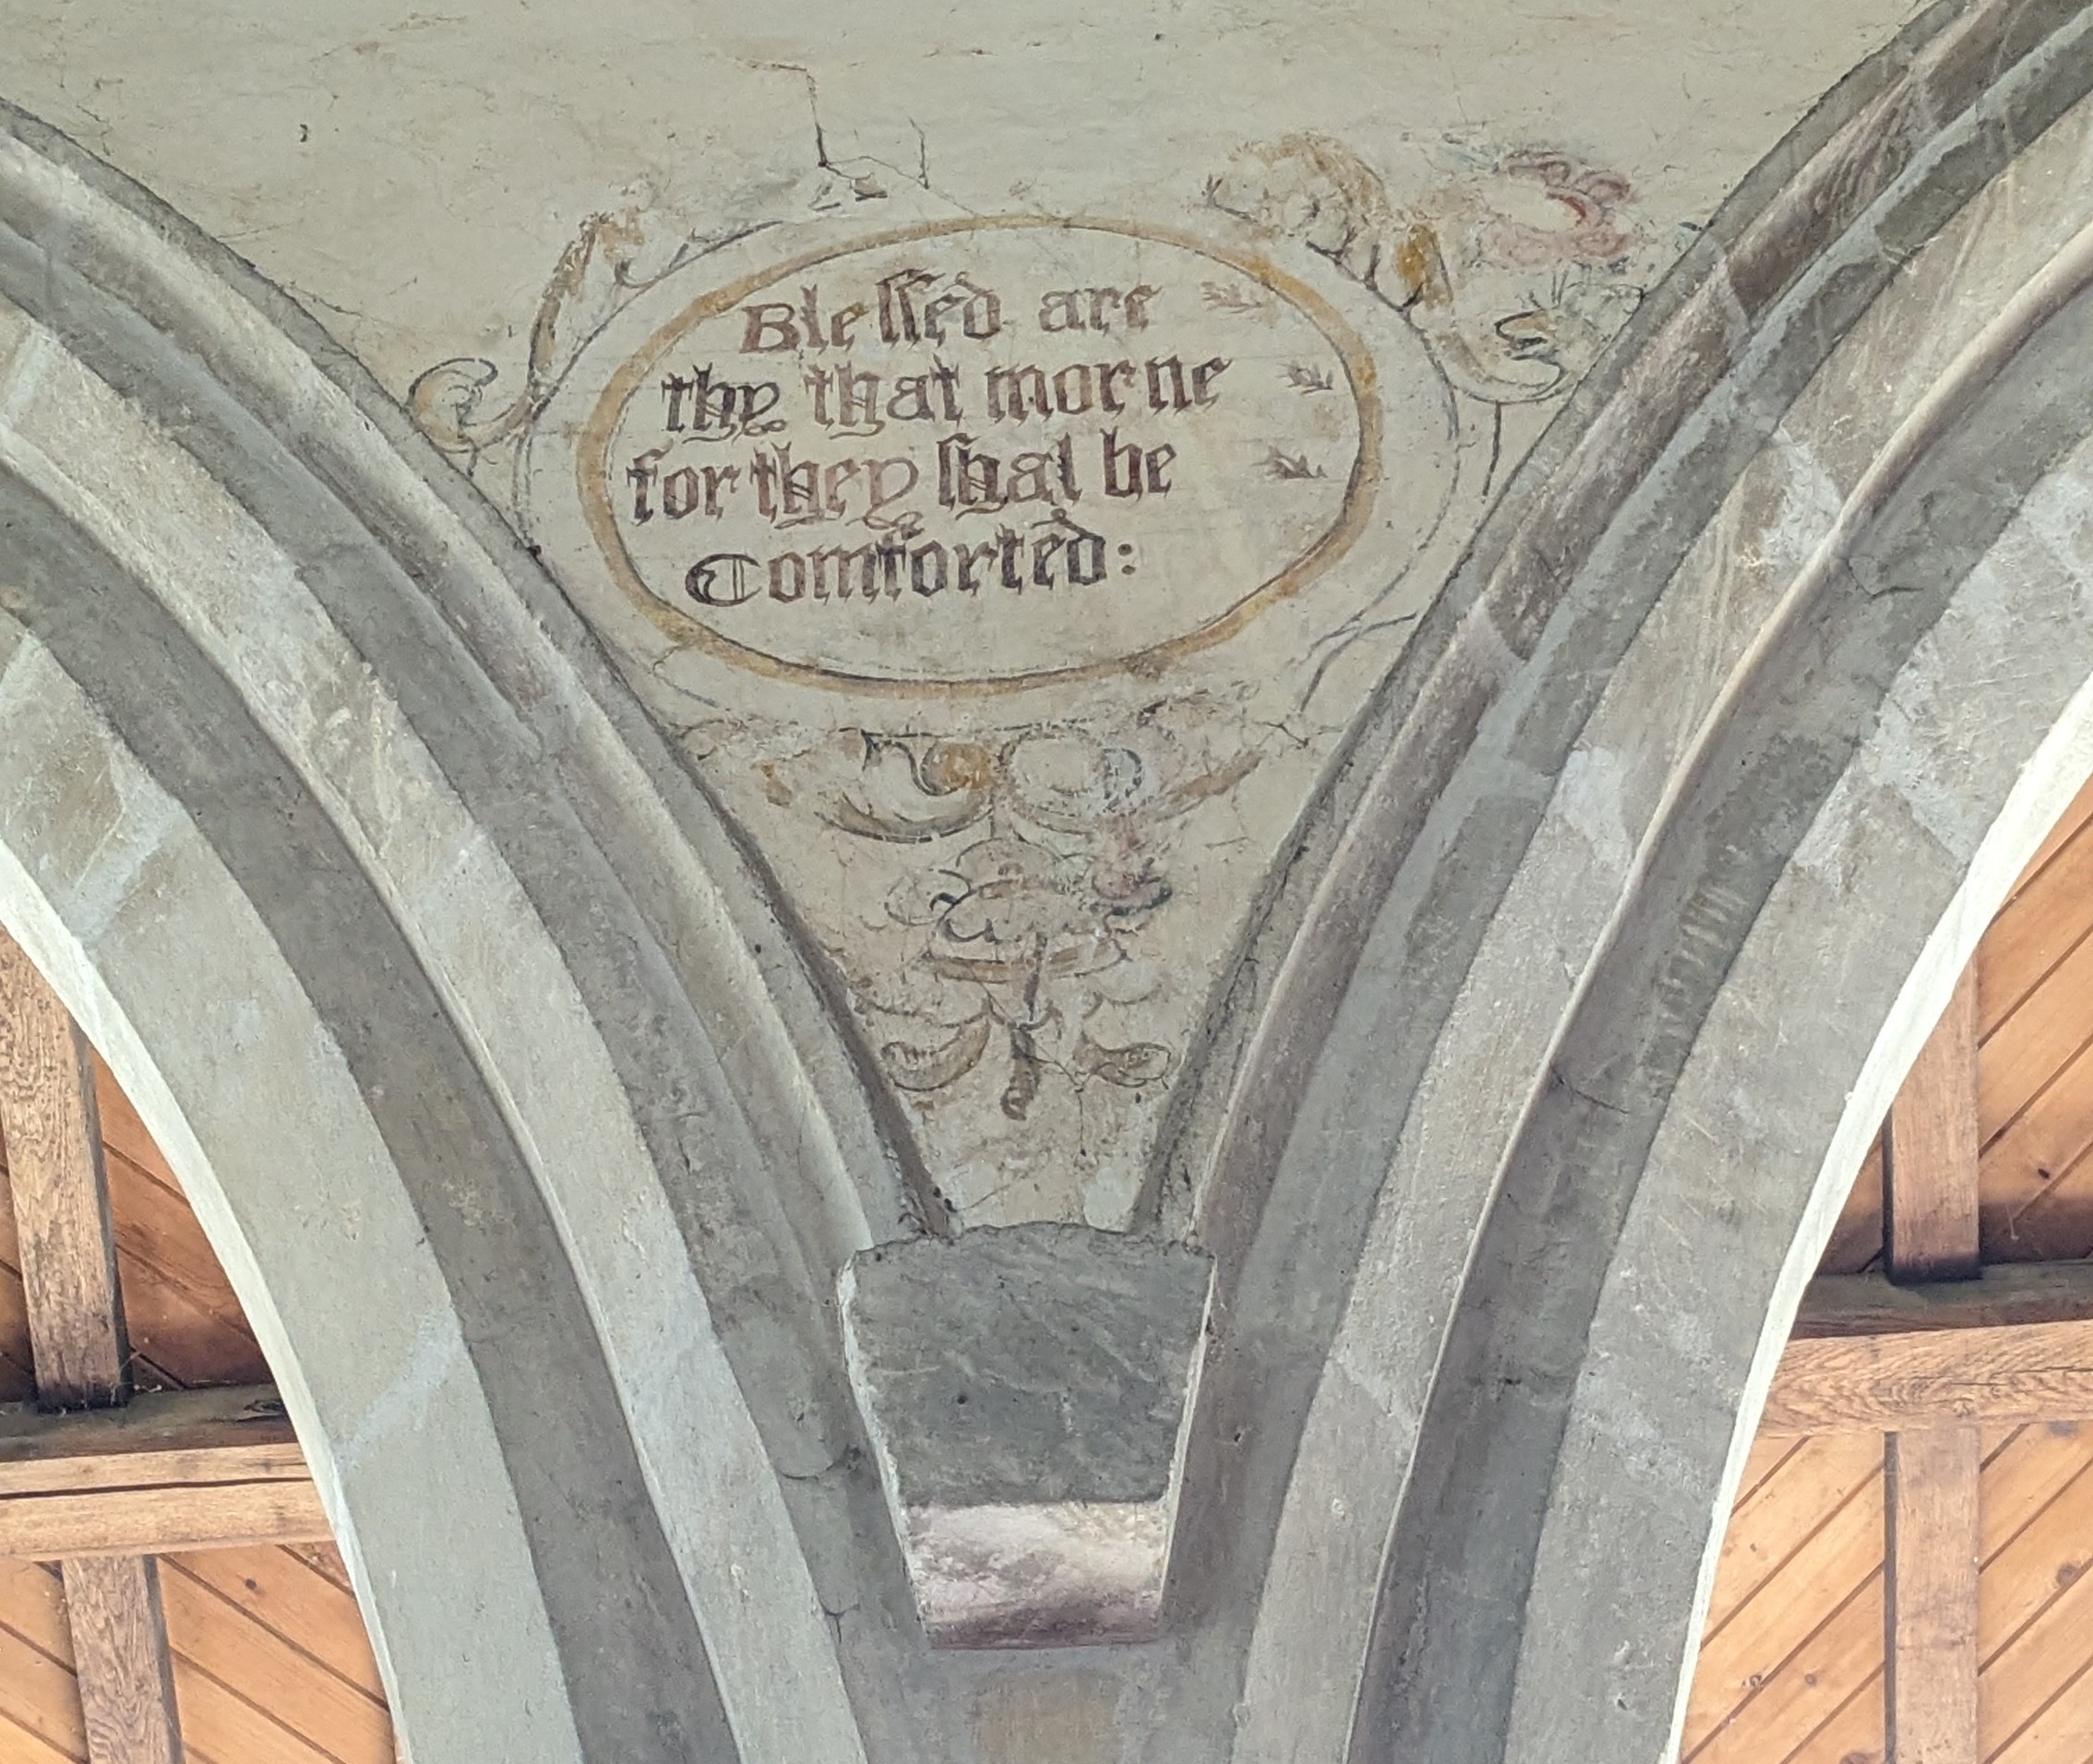 Blessed are
thy that morne
for they shal be
Comforted: